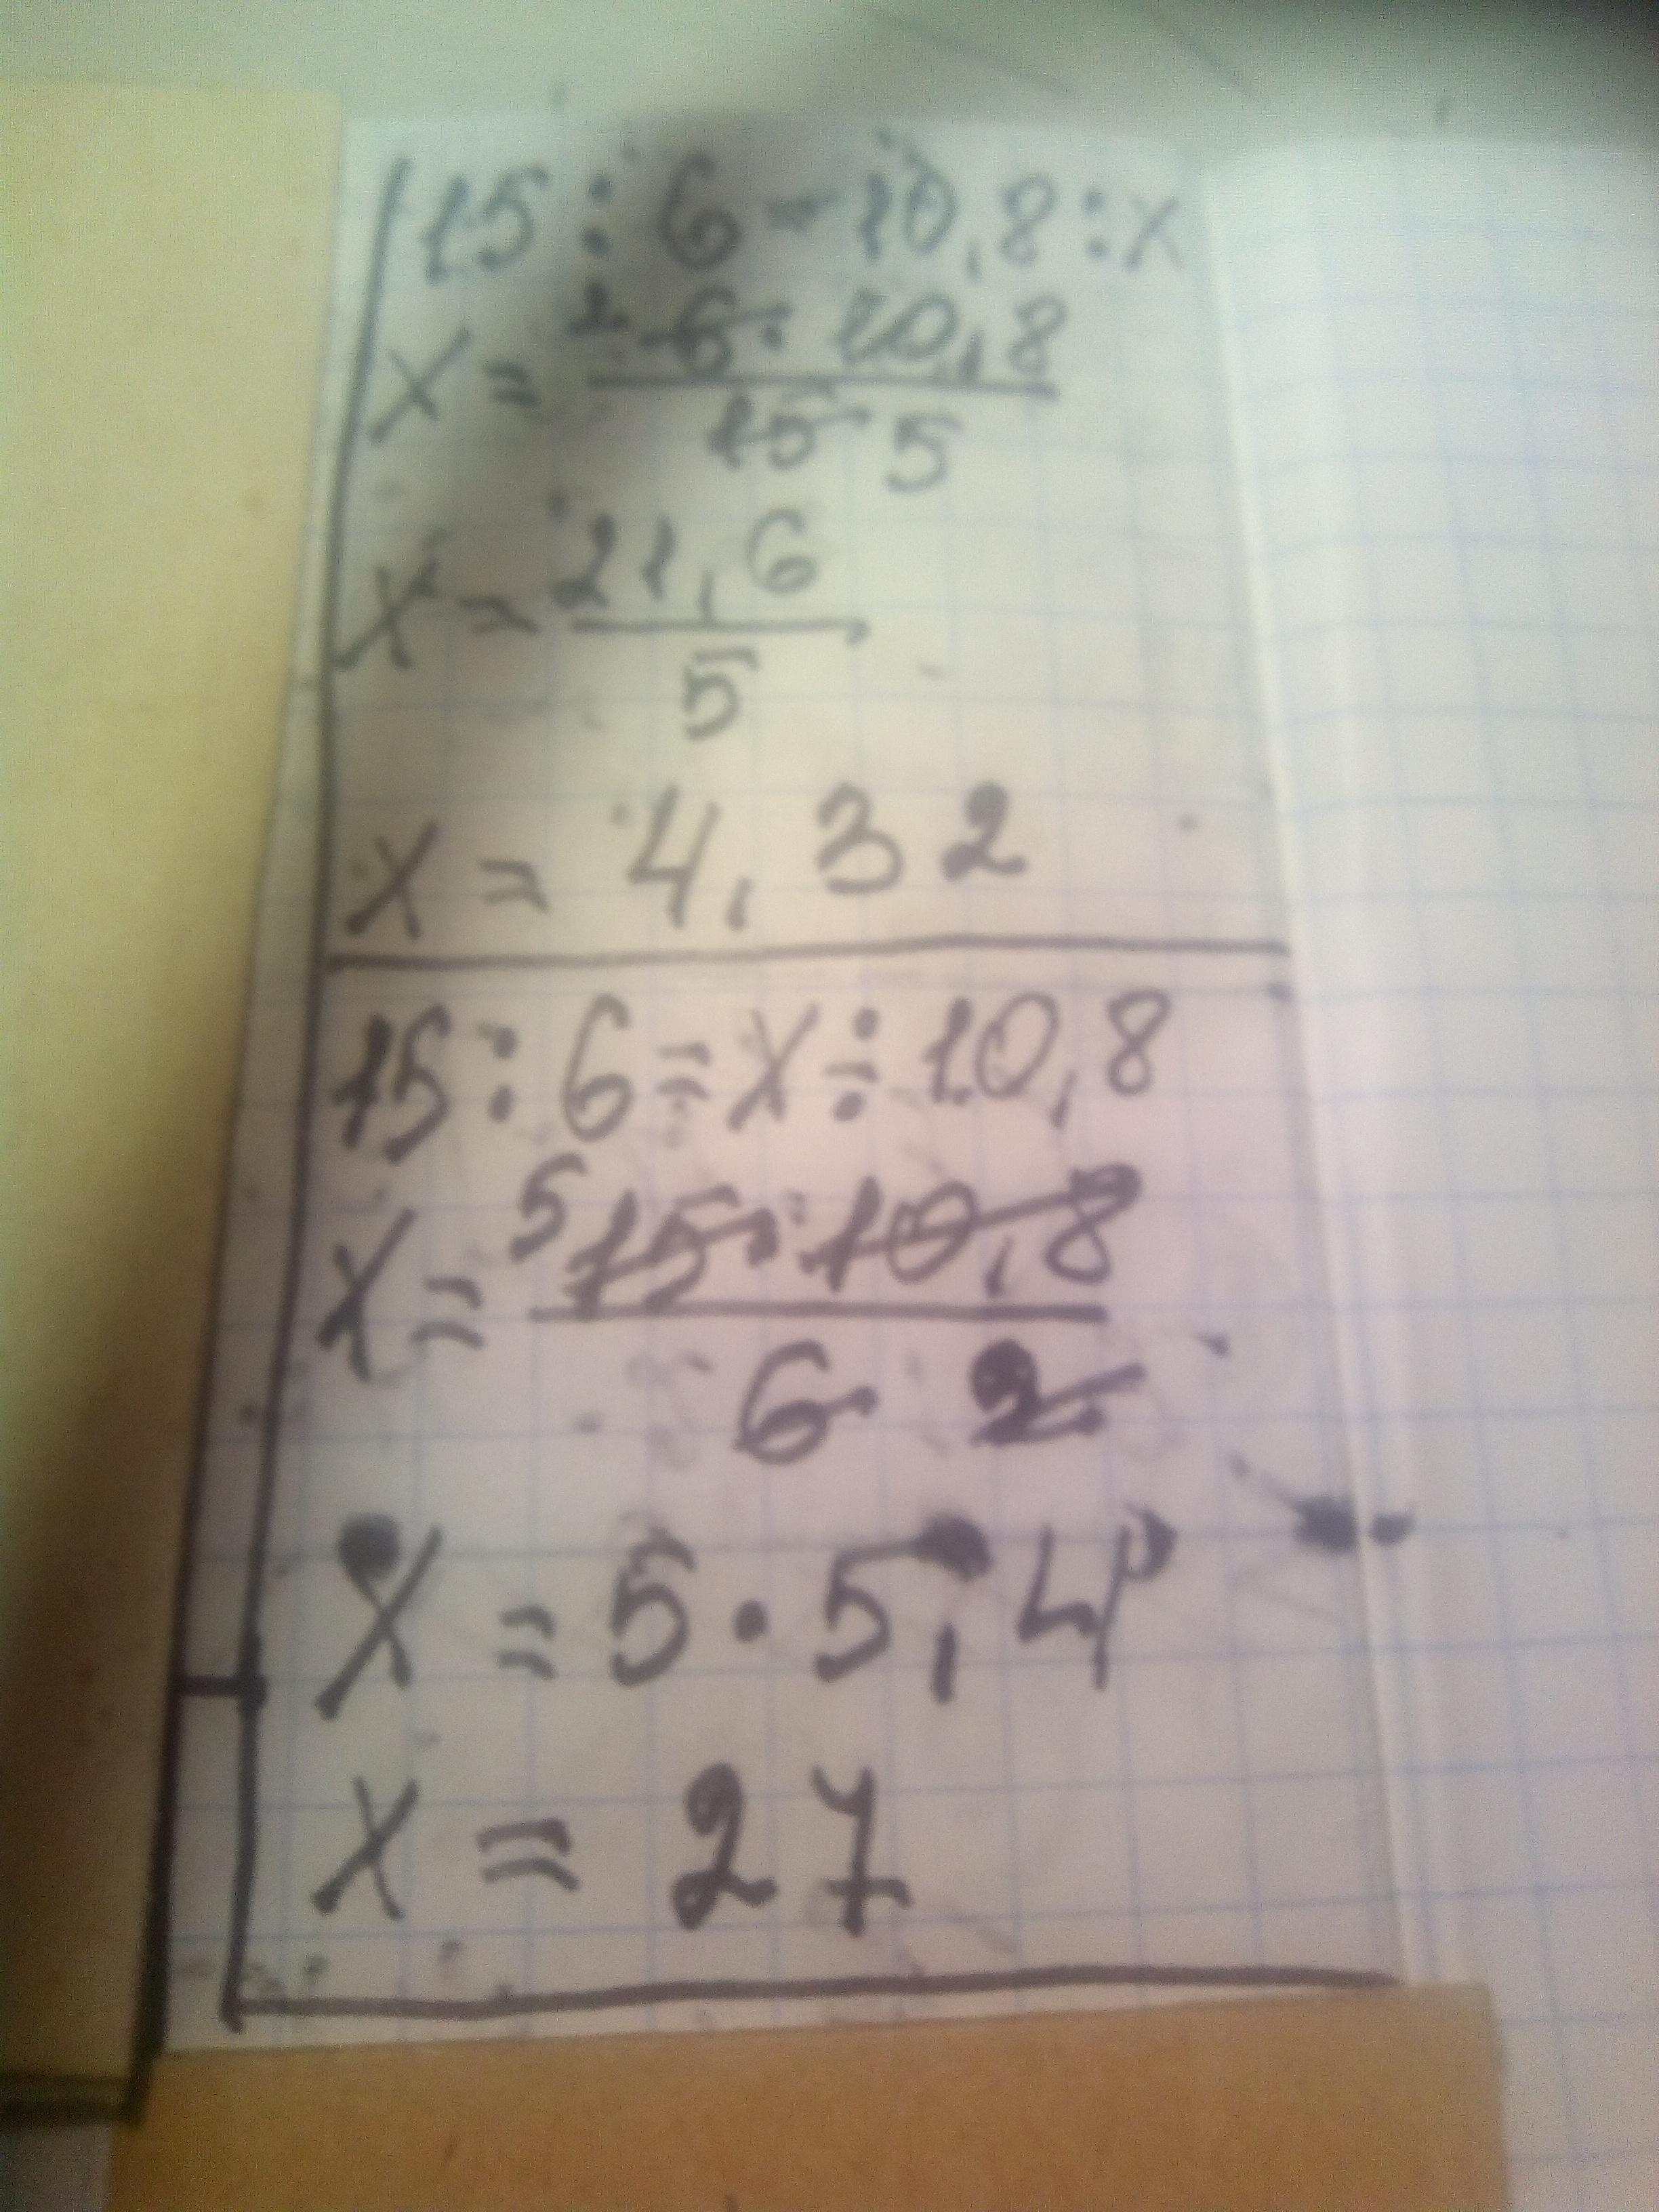 15:6=10,8:x
x=²6·10,8/15 5
x=21,6/5
x=4,32
15:6=x÷10,8
x=⁵15·10,8/6 2
x=5·5,4
x=27